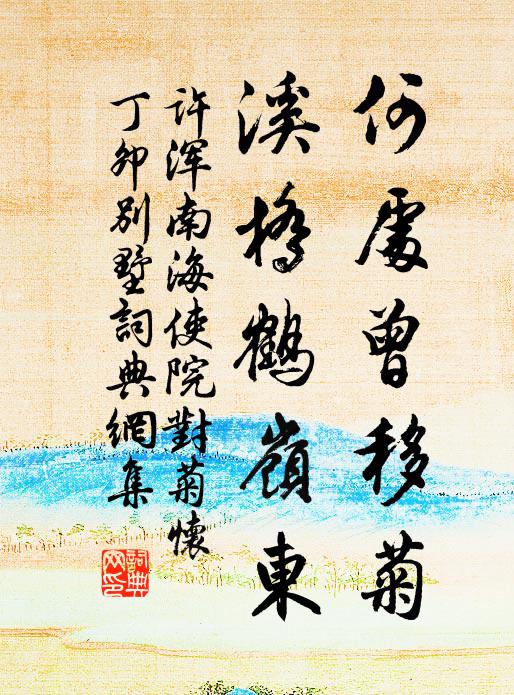 何處曾移菊
溪橋鶴嶺東
許渾南海使院對菊懷
丁卯別墅詞典網集
詞典
网印